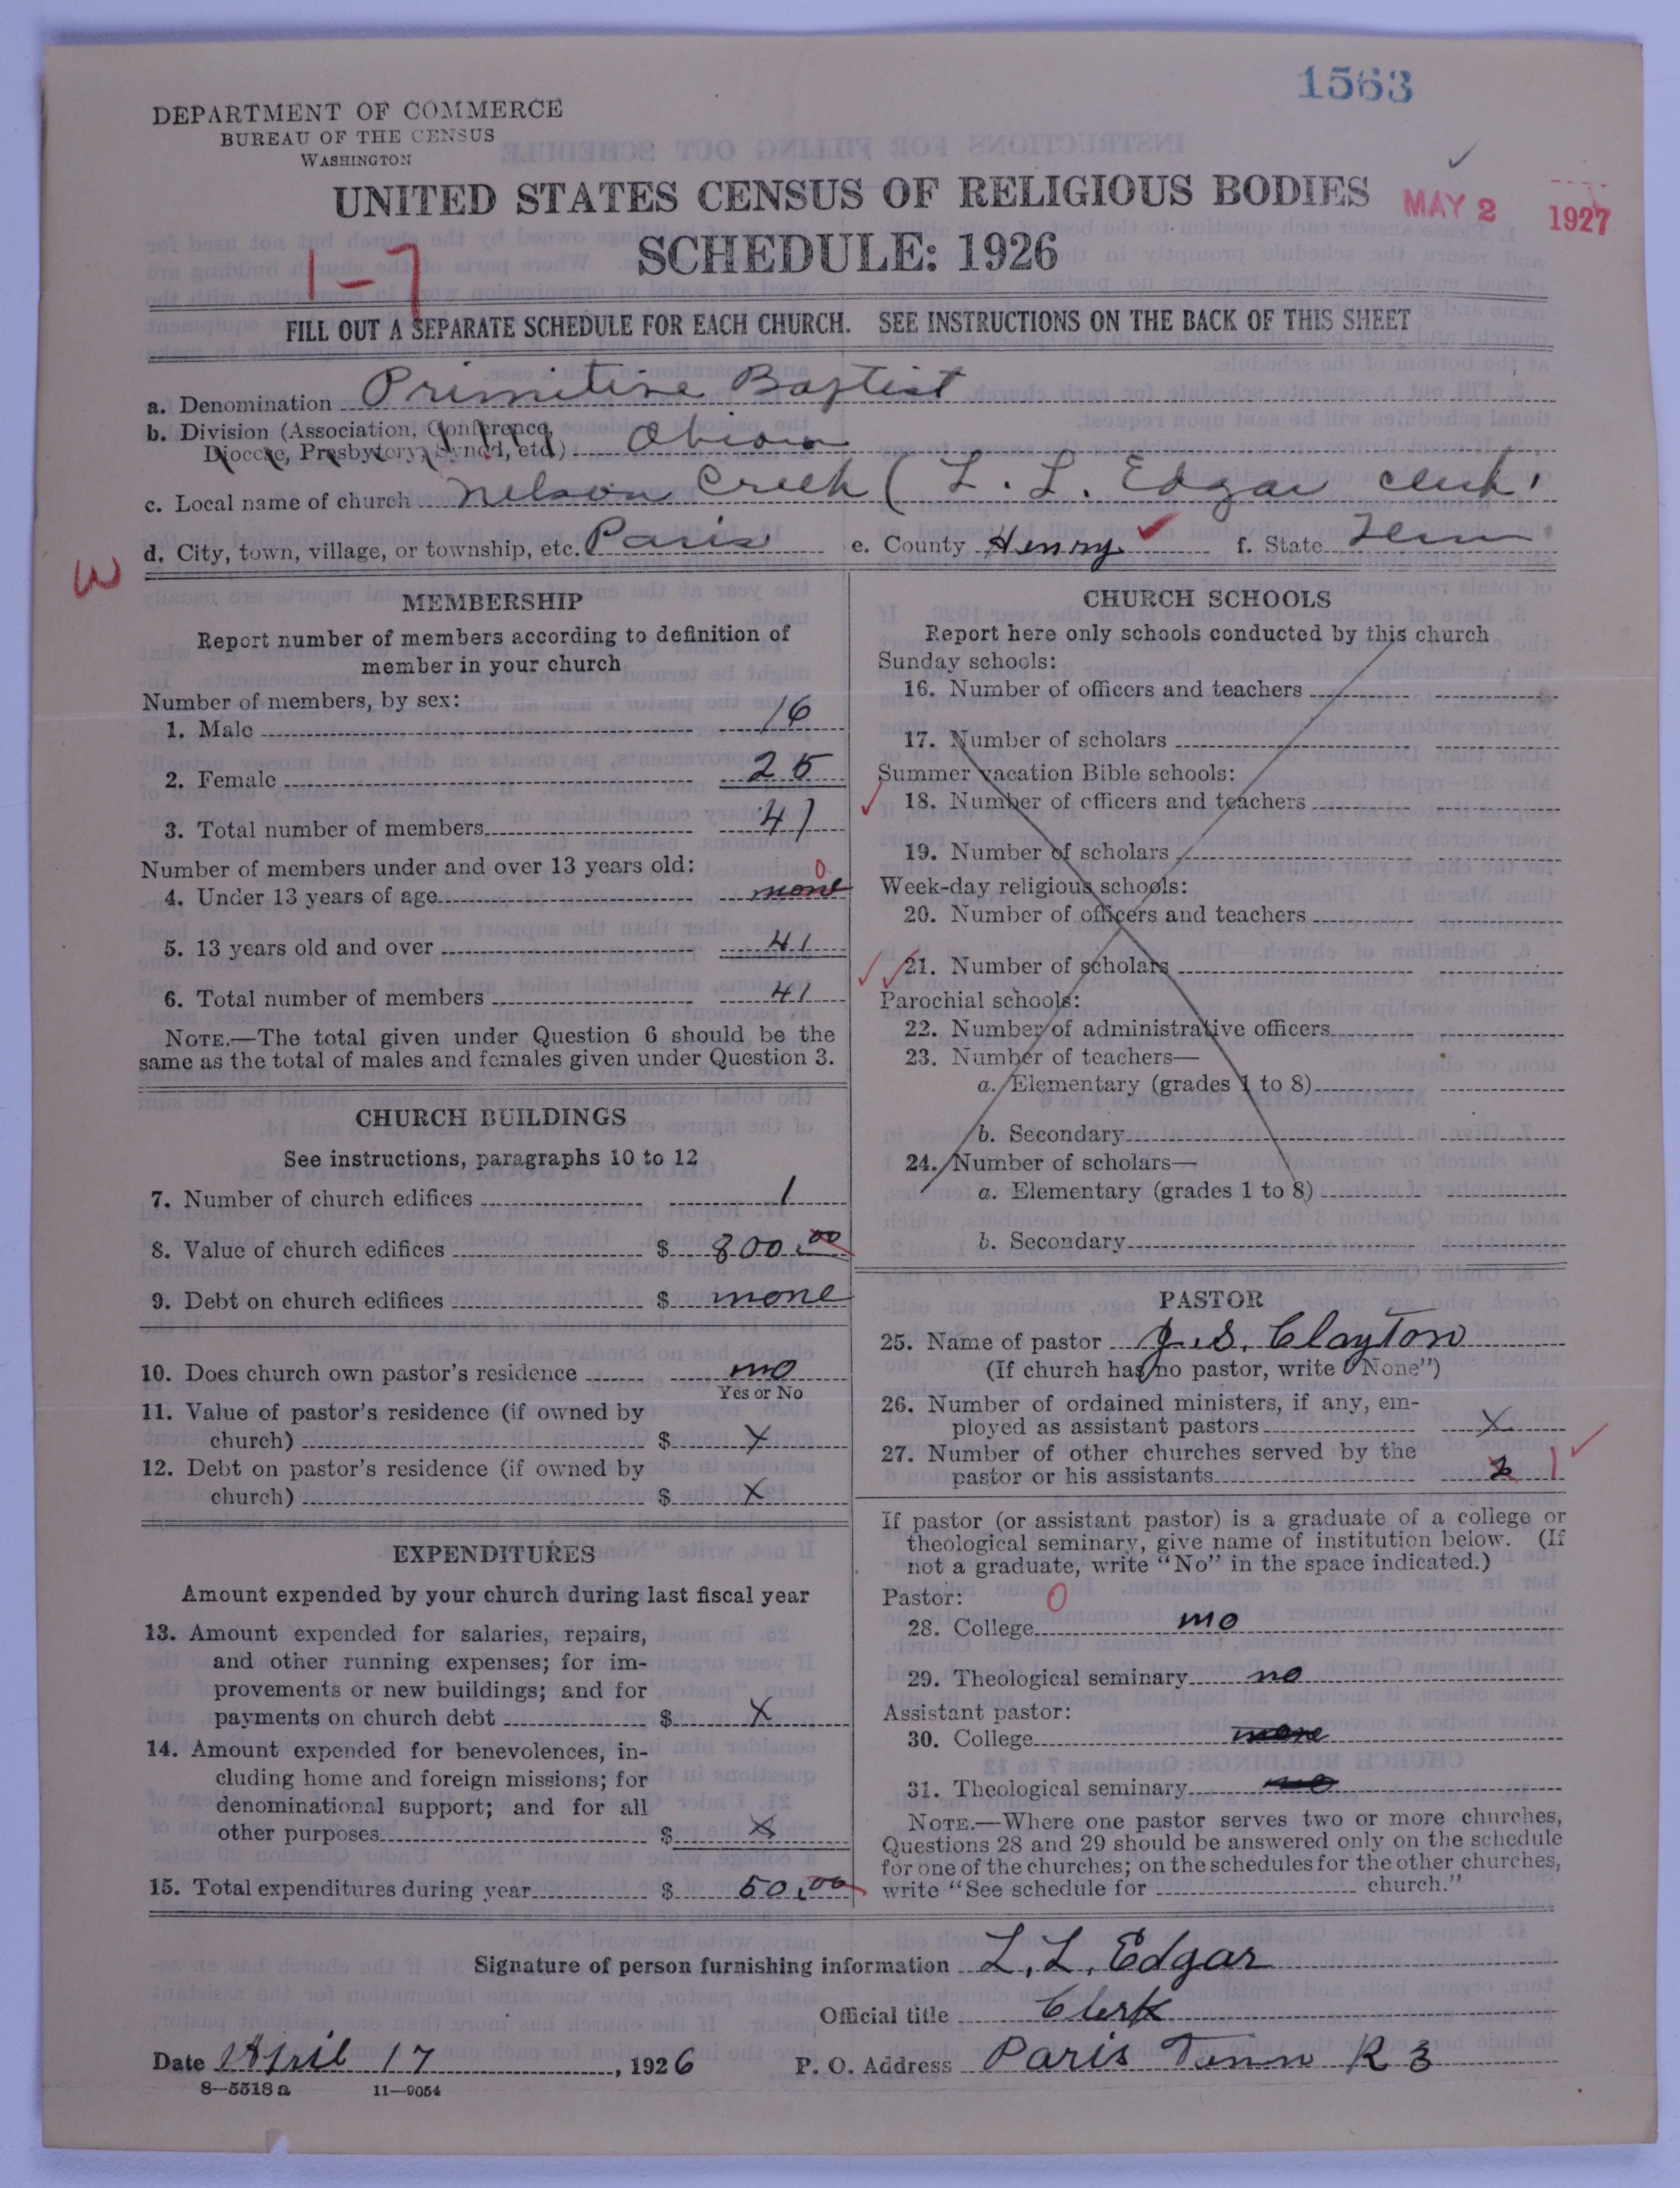 1563
DEPARTMENT OF COMMERCE
BUREAU OF THE CENSUS
WASHINGTON
UNITED STATES CENSUS OF RELIGIOUS BODIES
MAY 2 1927
SCHEDULE: 1926
1-7
FILL OUT A SEPARATE SCHEDULE FOR EACH CHURCH. SEE INSTRUCTIONS ON THE BACK OF THIS SHEET
a. Denomination Primitive Baptist
b. Division (Association, Conference,
Diocese, Presbytery, Synod, etc.) Obion
c. Local name of church Nelson Creek ( L. L. Edgar clerk
d. City, town, village, or township, etc. Paris e. County Henry f. State Tenn
W
MEMBERSHIP
Report number of members according to definition of
member in your church
Number of members, by sex:
1. Male 16
2. Female 25
3. Total number of members 41
Number of members under and over 13 years old:
0
4. Under 13 years of age none
5. 13 years old and over 41
6. Total number of members 41
NOTE.—The total given under Question 6 should be the
same as the total of males and females given under Question 3.
CHURCH BUILDINGS
See instructions, paragraphs 10 to 12
7. Number of church edifices 1
8. Value of church edifices $ 800.00
9. Debt on church edifices $ none
10. Does church own pastor's residence no
Yes or No
11. Value of pastor's residence (if owned by
church) $ X
12. Debt on pastor's residence (if owned by
church) $ X
EXPENDITURES
Amount expended by your church during last fiscal year
13. Amount expended for salaries, repairs,
and other running expenses; for im-
provements or new buildings; and for
payments on church debt $ X
14. Amount expended for benevolences, in-
cluding home and foreign missions; for
denominational support; and for all
other purposes $ X
15. Total expenditures during year $ 50.00
CHURCH SCHOOLS
Report here only schools conducted by this church
Sunday schools:
16. Number of officers and teachers
17. Number of scholars
Summer vacation Bible schools:
18. Number of officers and teachers
19. Number of scholars
Week-day religious schools:
20. Number of officers and teachers
21. Number of scholars
Parochial schools:
22. Number of administrative officers
23. Number of teachers—
a. Elementary (grades 1 to 8)
b. Secondary
24. Number of scholars—
a. Elementary (grades 1 to 8)
b. Secondary
PASTOR
25. Name of pastor J. S. Clayton
(If church has no pastor, write "None")
26. Number of ordained ministers, if any, em-
ployed as assistant pastors X
27. Number of other churches served by the
pastor or his assistants 1
If pastor (or assistant pastor) is a graduate of a college or
theological seminary, give name of institution below. (If
not a graduate, write "No" in the space indicated.)
Pastor: 0
28. College no
29. Theological seminary no
Assistant pastor:
30. College none
31. Theological seminary no
NOTE.—Where one pastor serves two or more churches,
Questions 28 and 29 should be answered only on the schedule
for one of the churches; on the schedules for the other churches,
write "See schedule for church."
Signature of person furnishing information L. L. Edgar
Official title Clerk
Date April 17, 1926 P. O. Address Paris Tenn R 3
8—5518 a 11—9054